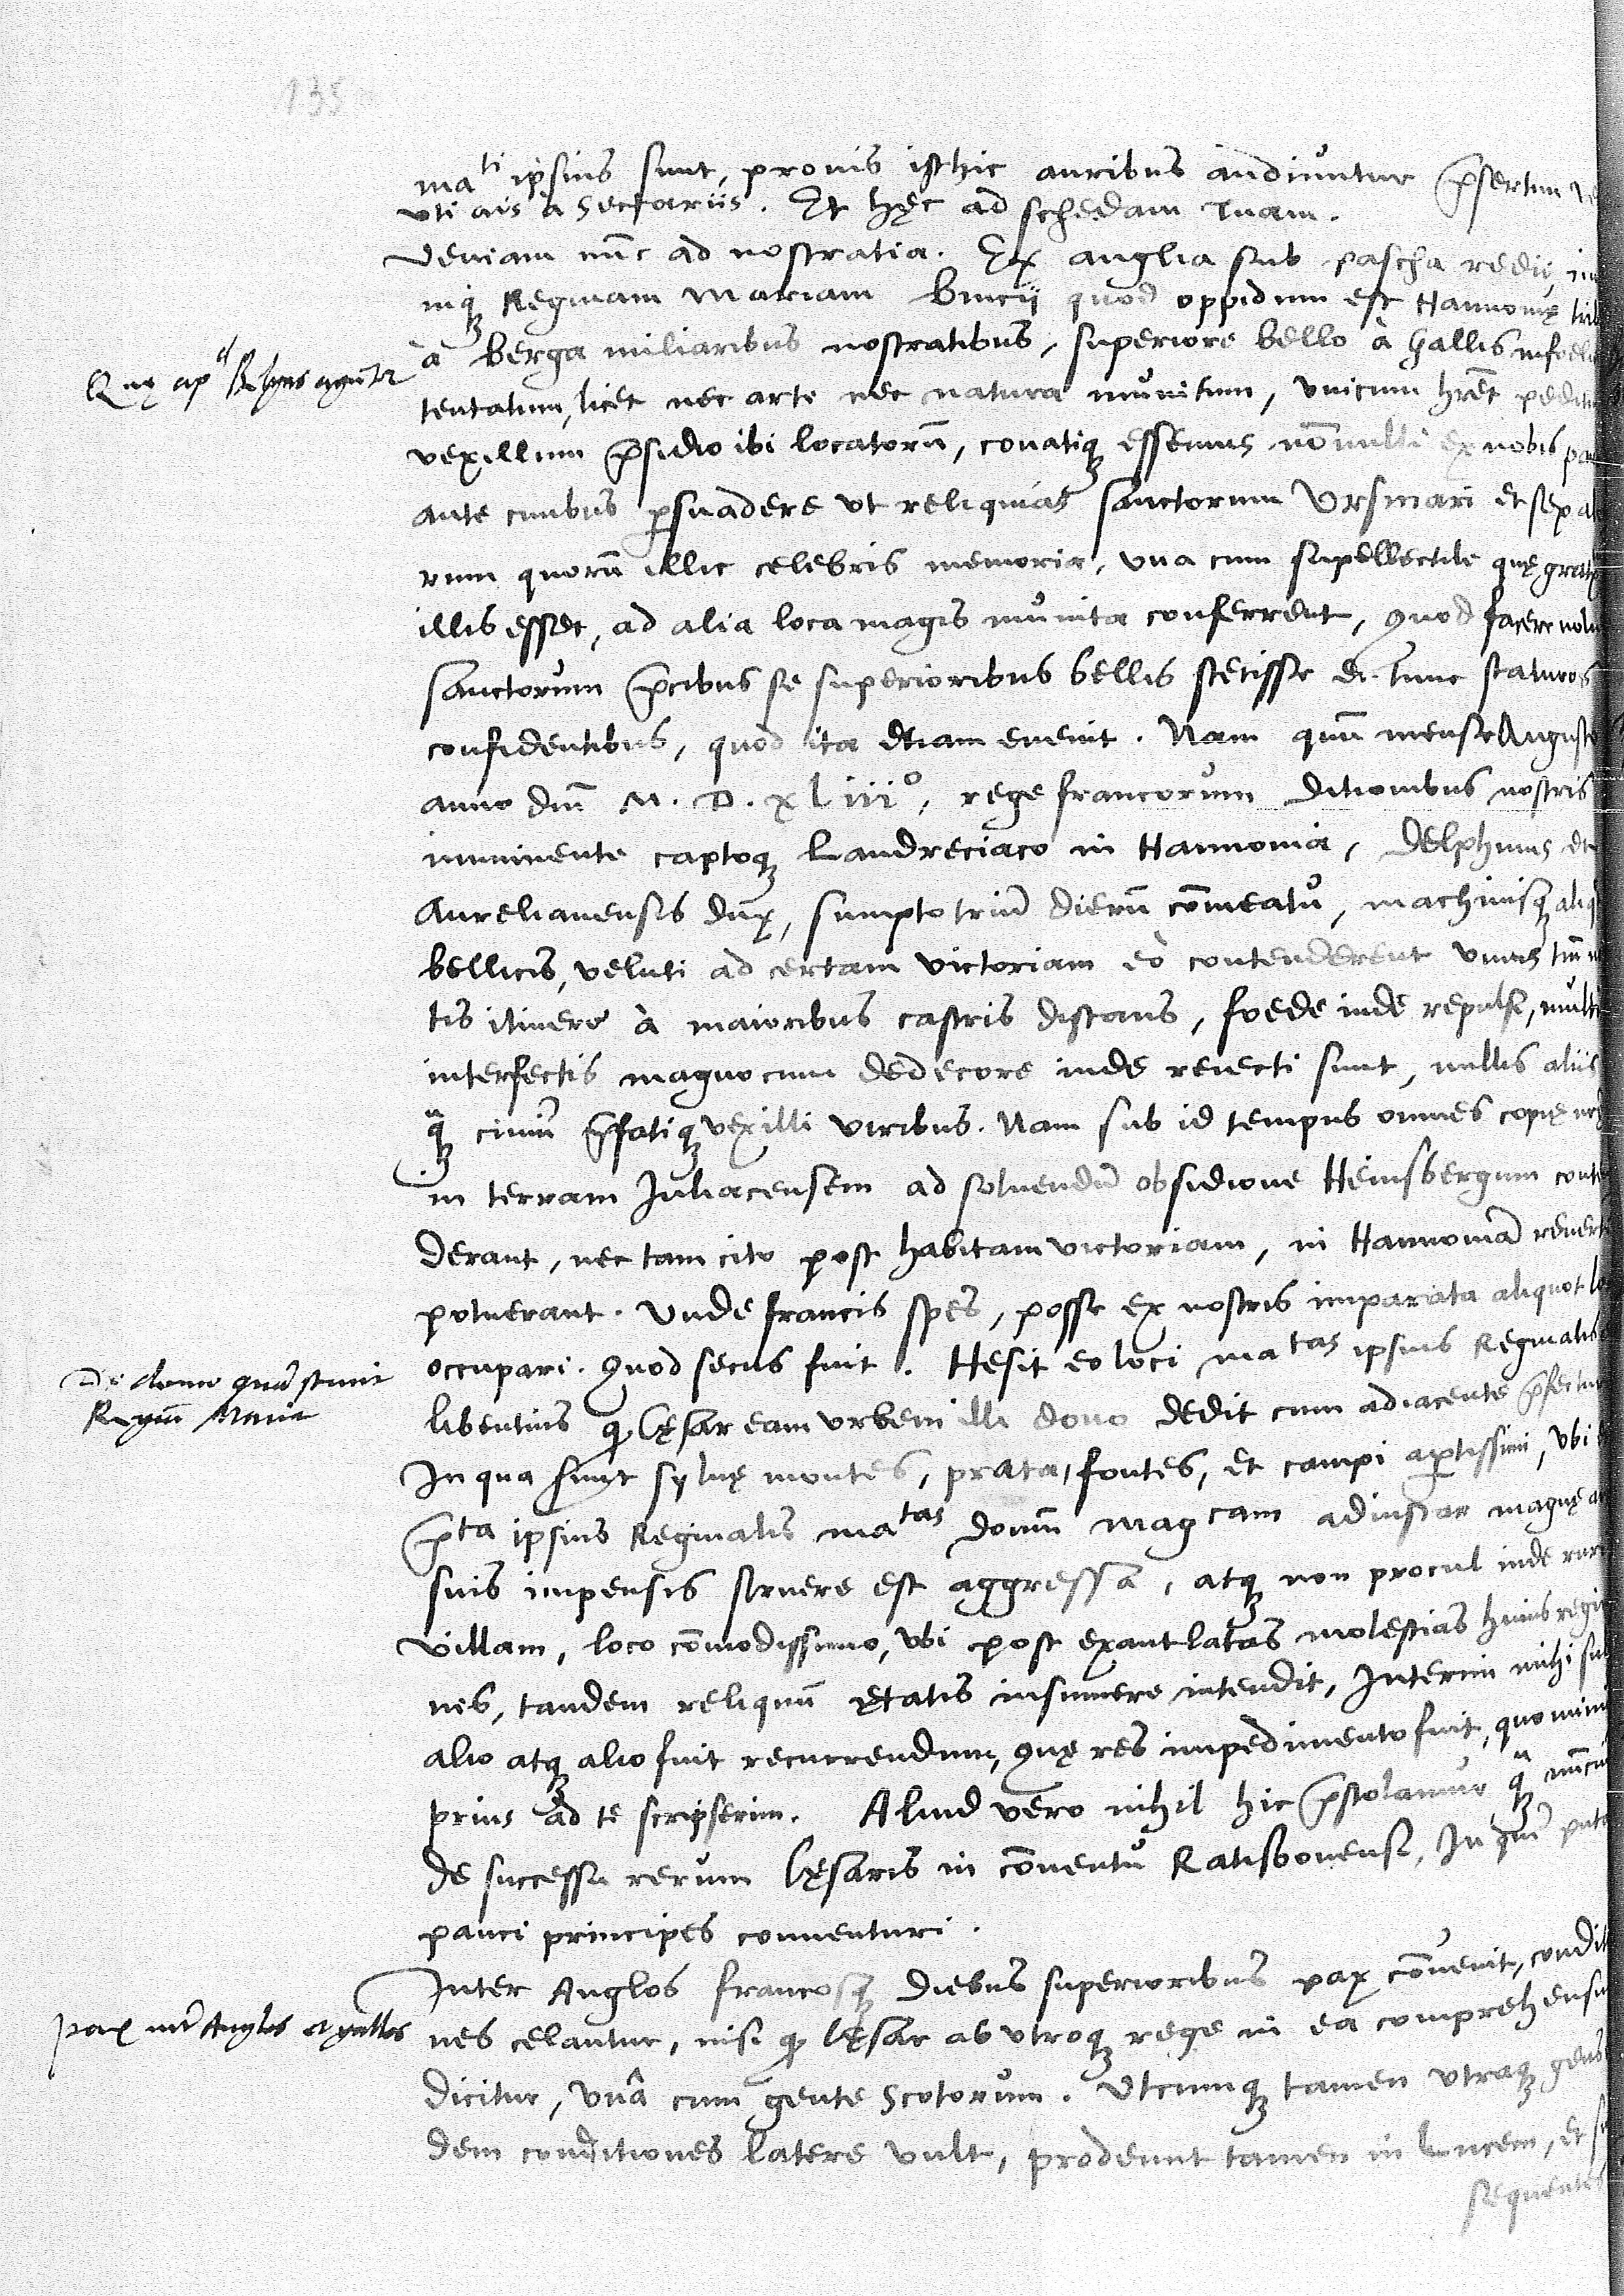 135
ma^ti ipsius sunt, pronis isthic auribus audiuntur p̄sertim
vti ais à Sectariis. Et hęc ad schedam tuam.
Veniam nūc ad nostratia. Ex anglia sub pascha redii,
inq̨ Reginam Mariam Bincii quod oppidum est Hannonię
Quę ap^d Belgas agūtr
à Berga miliaribus nostratibus, superiore bello à Gallis
tentatum, licet nec arte nec natura munitum, vnicum hr̄et
vexillum p̄sidio ibi locatorū, conatiq̨ essemus nōnulli ex nobis
ante ciuibus ꝑsuadere vt reliquias sanctorum Vrsmari et sex
rum quorū illic celebris memoria, vna cum supellectile quę
illis esset, ad alia loca magis munita conferrent, quod facere
sanctorum p̄cibus se superioribus bellis stetisse et tunc staturos
confidentibus, quod ita etiam euenit. Nam quū mense Augusto
anno dnī M. D. xliii°, rege francorum ditionibus nostris
imminente captoq̨ Landreciaco in Hannonia, Delphinus et
Aurelianensis dux, sumpto triū dierū cōmeatu, machinisq̨
bellicis, veluti ad certam victoriam eò contenderent vnius
tis itinere à maioribus castris distans, foede inde repulsi,
interfectis magno cum dedecore inde reiecti sunt, nullis aliis
q̨̃ ciuiū p̄fatiq̨ vexilli viribus. Nam sub id tempus omnes copię
in terram Juliacensem ad soluendū obsidione Heinsbergum
derant, nec tam cito post habitam victoriam, in Hannoniā
potuerant. Vnde francis spes, posse ex nostris imparata aliquot
occupari. Quod secus fuit. Hesit eo loci ma^tas ipsius Reginalis
De domo quā struit
Regina Maria
libentius ꝙ Cęsar eam vrbem illi dono dedit cum adiacente
In qua sunt syluę montes, prata, fontes, et campi aptissimi, vbi
p̄^ta ipsius Reginalis ma^tas domū mag^cam ad instar magnę
suis impensis struere est aggressa, atq̨ non procul inde
villam, loco cōmodissimo, vbi post exantlatas molestias huius
nis, tandem reliquū ętatis insumere intendit, Interim mihi
alio atq̨ alio fuit recurrendum, quę res impedimento fuit,
prius ad te scripserim. Aliud vero nihil hic p̄stolamur q̨̃
de successu rerum Cęsaris in cōuentu Ratisbonensi, In
pauci principes conuenturi.
Pax intr̄ Anglos et gallos
Inter Anglos francosq̨ diebus superioribus pax cōuenit,
nes celantur, nisi ꝙ Cęsar ab vtroq̨ rege in ea
dicitur, vnâ cum gente Scotorum. Vtcumq̨ tamen vtraq̨ gens
dem conditiones latere vult, prodeunt tamen in lucem, et
sequentes